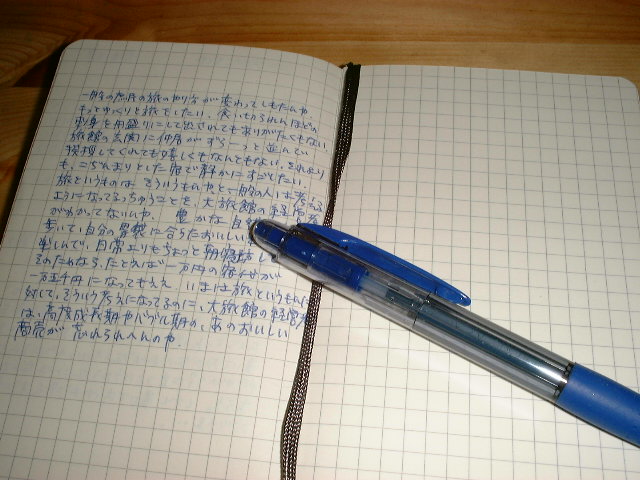 一般の庶民の旅のやり方が変わってしもたんや
もっとゆっくりと旅をしたい、食い切られんほどの
刺身を舟盛りにして出されてもありがたくもない
旅館の玄関に仲居がずらーっと並んでい
挨拶してくれても嬉しくもなんともない。それより
も、こぢんまりとした宿で静かにすごしたい。
旅というものはそういうもんやと一般の人は考える
ようになってるっちゅうことを、大旅館の経営者
がわかってないんや、豊かな自然
歩いて、自分の背丈に合うたおいしい
楽しんで、日常よりもちょっと朝寝坊して
そのためなら、たとえば一万円の宿代が
一万五千円になってもええ いまは旅というもんに
対して、そういう考えになってるのに、大旅館の経営者
は、高度成長期やバブル期の、あのおいしい
商売が 忘れられへんのや